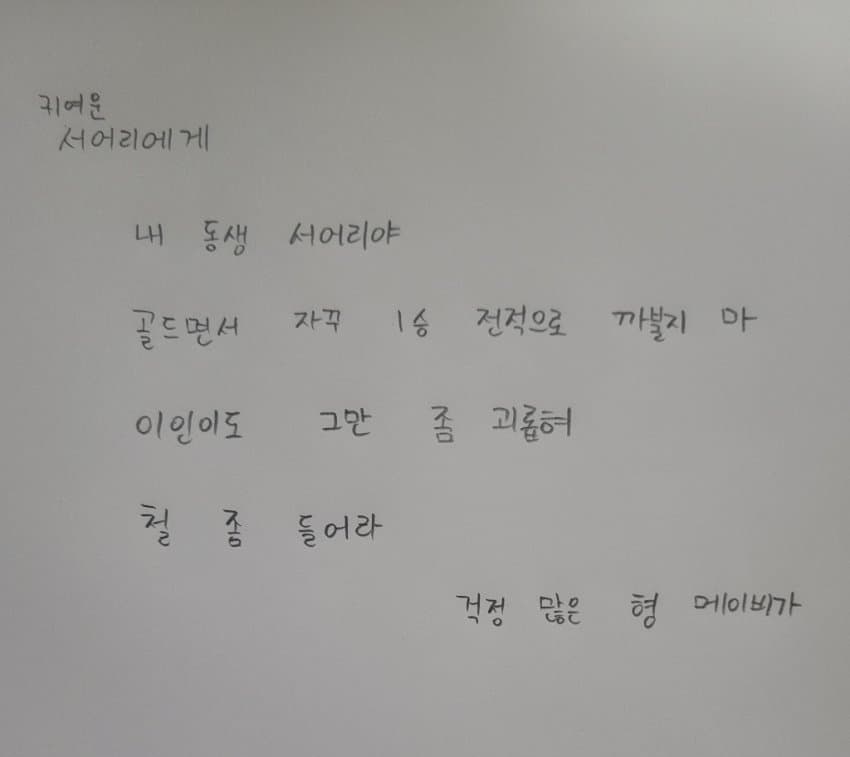 귀여운
서어리에게
내 동생 서어리야
골드면서 자꾸 1승 전적으로 까불지 마
이인이도 그만 좀 괴롭혀
철 좀 들어라
걱정 많은 형 메이비가